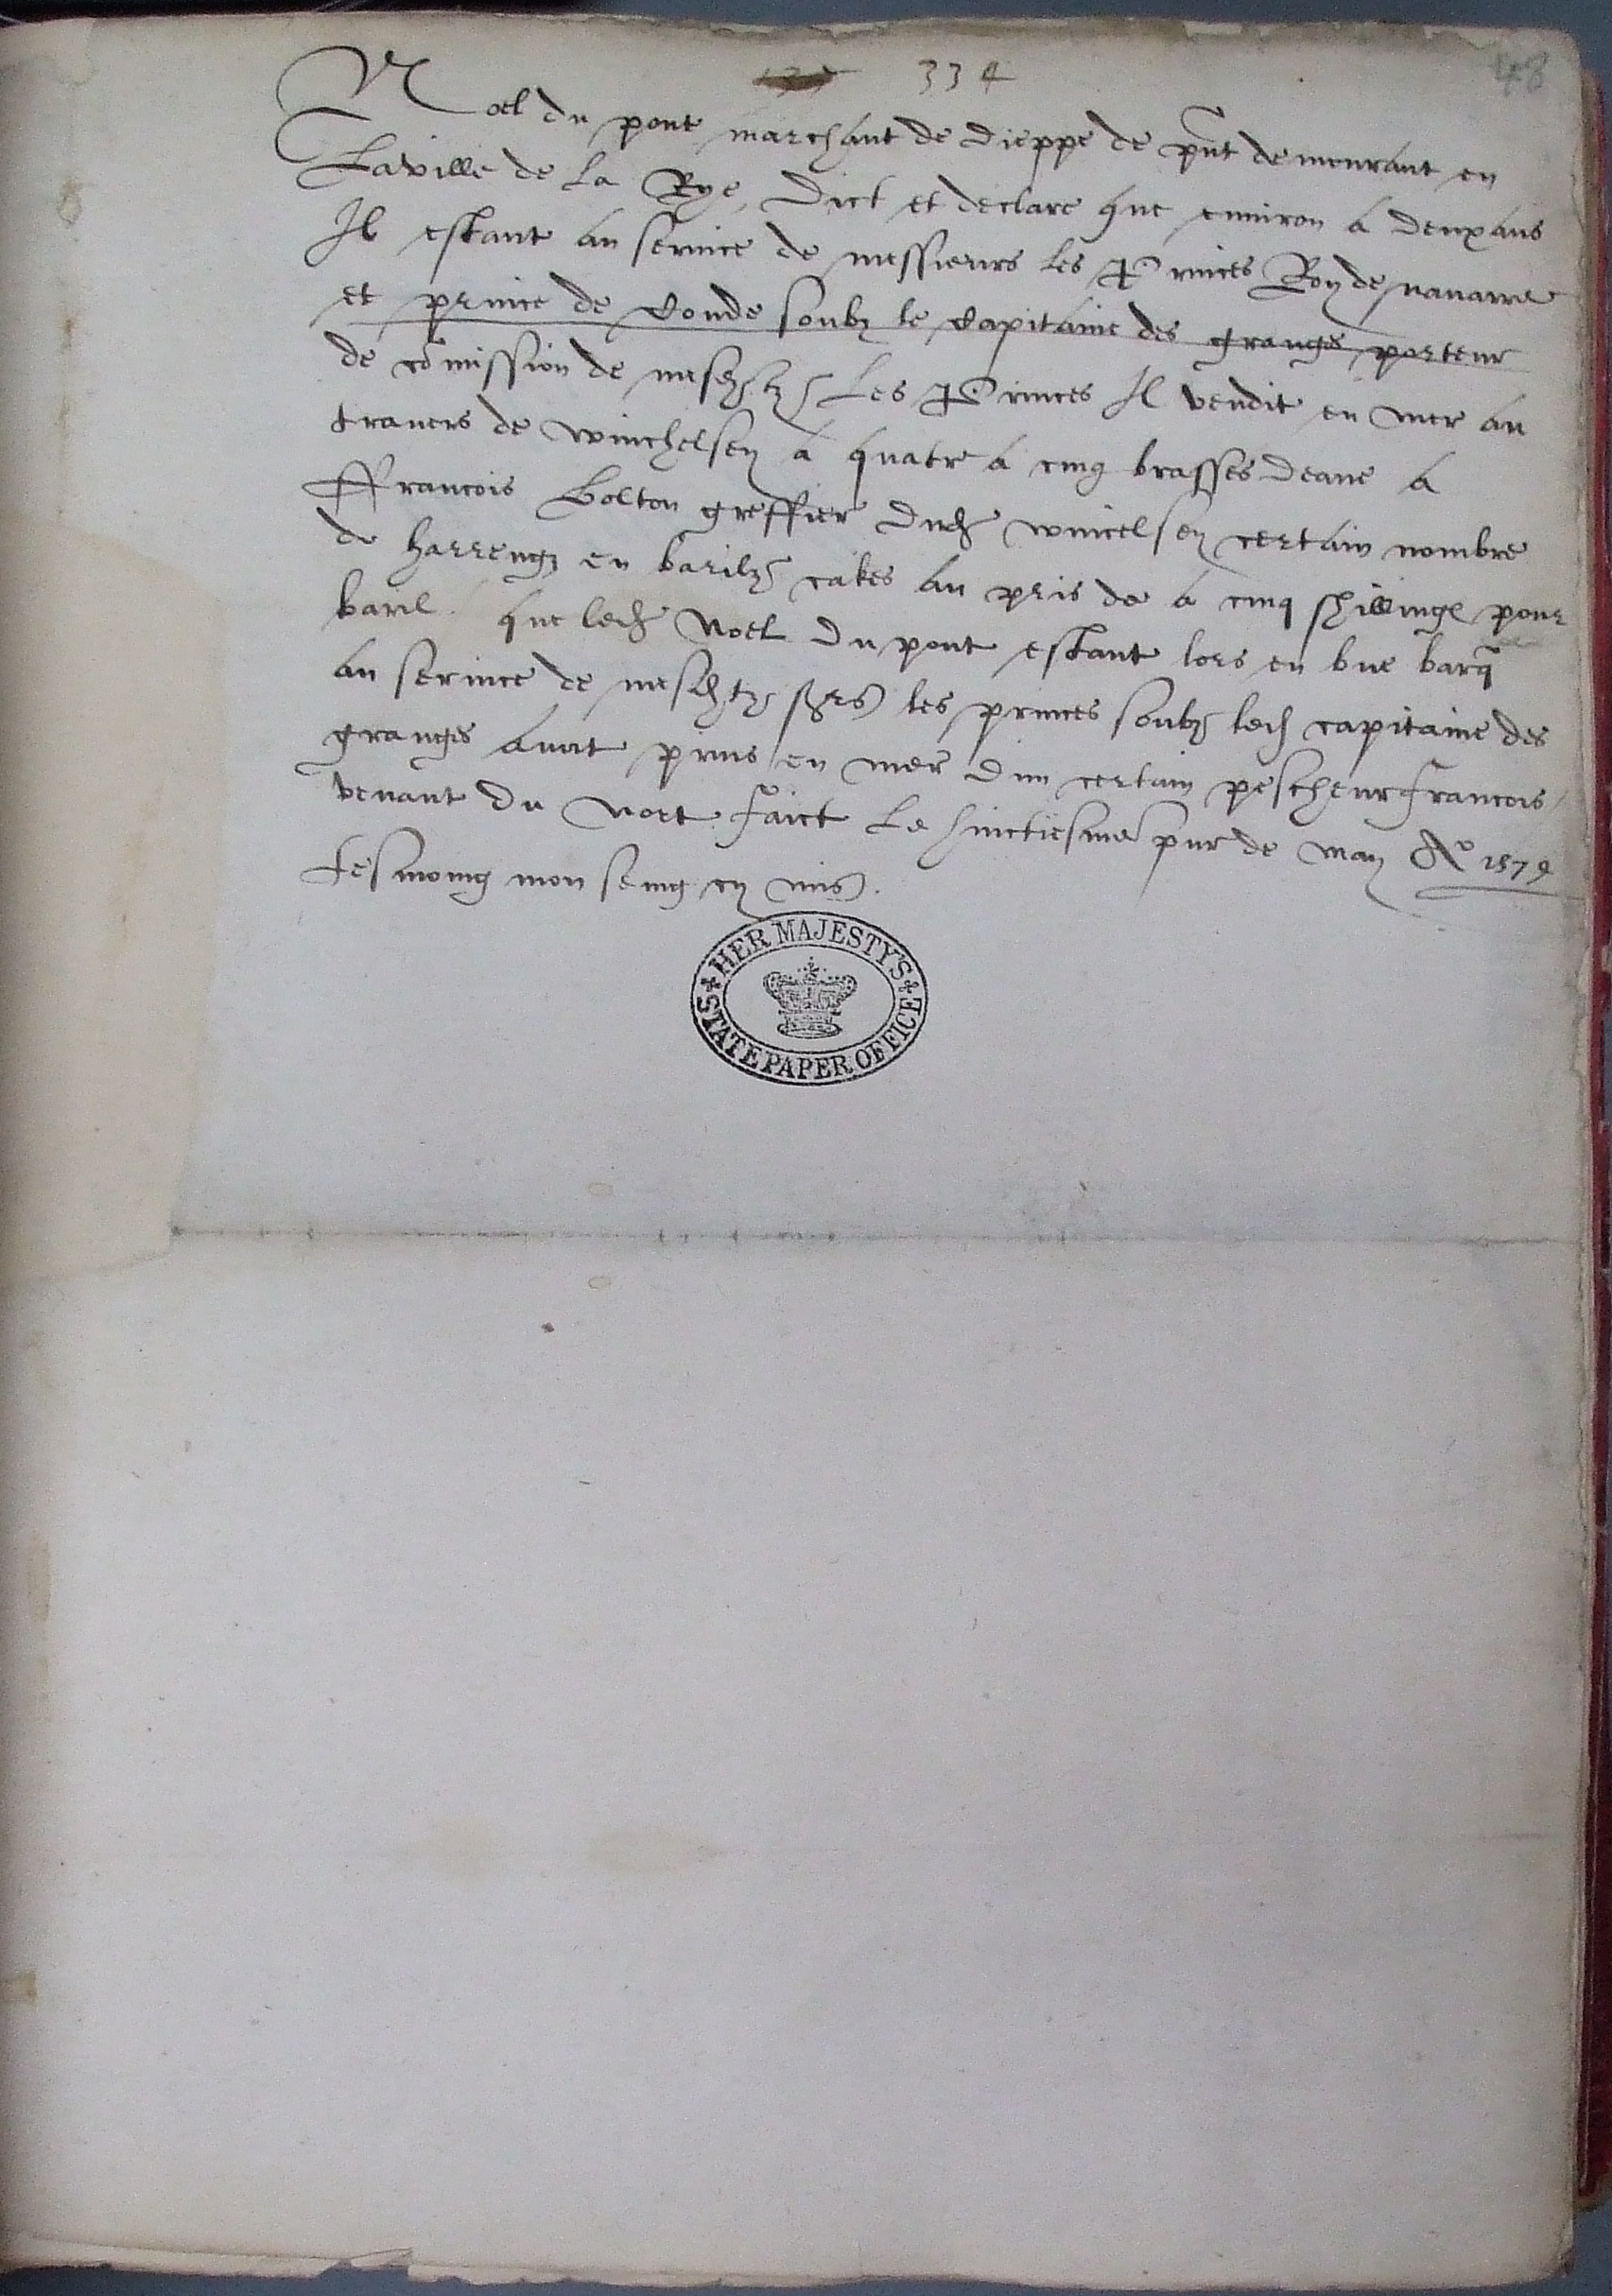 334
48
Noel du pont marchant de Dieppe de pñt demeurant en
Laville de la Rye, Dict et declare que enuiron a deux ans
Il estant au seruice de messieurs les Princes Roy de nauarre
et prince de Conde soubz le Capitaine des granges porteur
de cõmission de mesd. Les Princes Il vendit en mer au
trauers de winchelsey a quatre a cinq brasses deaue a
Francois Bolton greffier dud wincelsey certain nombre
de harrengz en barilz cakes au pris de a cinq shillings pour
baril. que led Noel du pont estant lors en vne barq̃
au seruice de mesd srs les princes soubz led capitaine des
granges auoit prins en mer dun certain pescheur francois
venant du Nort faict Le huictiesme jour de May Ao 1579
tesmoing mon seing cy mis.
HER MAJESTY'S
STATE PAPER OFFICE